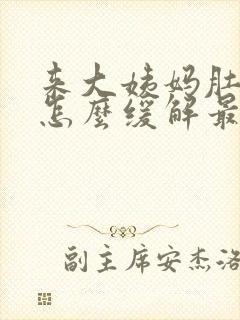 来大姨妈肚
怎麼缓解最
副主席安杰洛